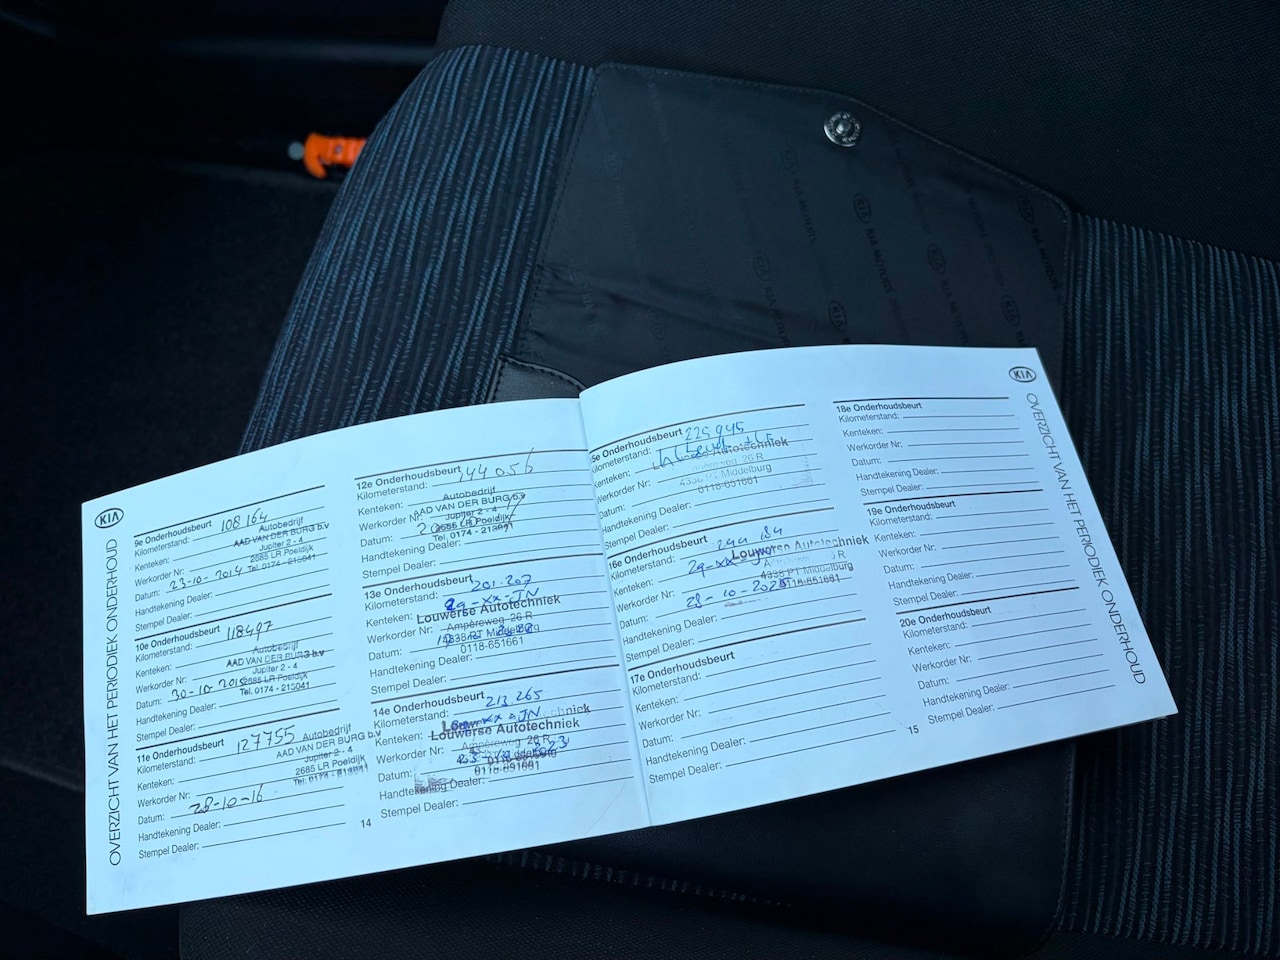 KIA
OVERZICHT VAN HET PERIODIEK ONDERHOUD
9e Onderhoudsbeurt
Kilometerstand: 108 164
Kenteken:
Werkorder Nr:
Datum: 23-10-2014
Handtekening Dealer:
Stempel Dealer:
Autobedrijf
AAD VAN DER BURG b.v
Jupiter 2 - 4
2685 LR Poeldijk
Tel. 0174 - 213041
10e Onderhoudsbeurt
Kilometerstand: 118497
Kenteken:
Werkorder Nr:
Datum: 30-10-2015
Handtekening Dealer:
Stempel Dealer:
Autobedrijf
AAD VAN DER BURG b.v
Jupiter 2 - 4
2685 LR Poeldijk
Tel. 0174 - 213041
11e Onderhoudsbeurt
Kilometerstand: 127755
Kenteken:
Werkorder Nr:
Datum: 28-10-16
Handtekening Dealer:
Stempel Dealer:
Autobedrijf
AAD VAN DER BURG b.v
Jupiter 2 - 4
2685 LR Poeldijk
Tel. 0174 - 213041
12e Onderhoudsbeurt
Kilometerstand: 144056
Kenteken:
Werkorder Nr:
Datum:
Handtekening Dealer:
Stempel Dealer:
Autobedrijf
AAD VAN DER BURG b.v
Jupiter 2 - 4
2685 LR Poeldijk
Tel. 0174 - 213041
13e Onderhoudsbeurt
Kilometerstand: 201.207
Kenteken: 29-XX-JN
Werkorder Nr:
Datum:
Handtekening Dealer:
Stempel Dealer:
Louwerse Autotechniek
Ampèreweg 26 R
4338 PT Middelburg
0118-651661
14e Onderhoudsbeurt
Kilometerstand: 213 265
Kenteken: XX-JN
Werkorder Nr:
Datum:
Handtekening Dealer:
Stempel Dealer:
Louwerse Autotechniek
Ampèreweg 26 R
0118-651661
14
5e Onderhoudsbeurt
Kilometerstand: 225945
Kenteken:
Werkorder Nr:
Datum:
Handtekening Dealer:
Stempel Dealer:
Autotechniek
Ampèreweg 26 R
4338 PT Middelburg
0118-651661
16e Onderhoudsbeurt
Kilometerstand:
Kenteken: 29-XX
Werkorder Nr:
Datum:
Handtekening Dealer:
Stempel Dealer:
Louwerse Autotechniek
4338 PT Middelburg
0118-651661
17e Onderhoudsbeurt
Kilometerstand:
Kenteken:
Werkorder Nr:
Datum:
Handtekening Dealer:
Stempel Dealer:
18e Onderhoudsbeurt
Kilometerstand:
Kenteken:
Werkorder Nr:
Datum:
Handtekening Dealer:
Stempel Dealer:
19e Onderhoudsbeurt
Kilometerstand:
Kenteken:
Werkorder Nr:
Datum:
Handtekening Dealer:
Stempel Dealer:
20e Onderhoudsbeurt
Kilometerstand:
Kenteken:
Werkorder Nr:
Datum:
Handtekening Dealer:
Stempel Dealer:
15
KIA
OVERZICHT VAN HET PERIODIEK ONDERHOUD
KIA MOTORS